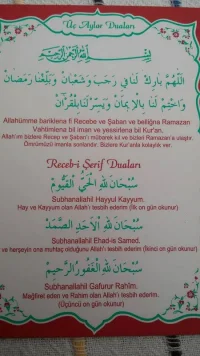 Üç Aylar Duaları
بِسْمِ اللهِ الرَّحْمٰنِ الرَّحِيمِ
اَللّٰهُمَّ بَارِكْ لَنَا فِي رَجَبَ وَشَعْبَانَ وَبَلِّغْنَا رَمَضَانَ
وَاخْتِمْ لَنَا بِالْاِيمَانِ وَيَسِّرْ لَنَا بِالْقُرْآنِ
Allahümme bariklena fi Recebe ve Şaban ve belliğna Ramazan
Vahtimlena bil iman ve yessirlena bil Kur'an.
Allah'ım bizlere Receb ve Şaban'ı mübarek kıl ve bizleri Ramazan'a ulaştır.
Ömrümüzü imanla sonlandır. Bizlere Kur'anla kolaylık ver.
Receb-i Şerif Duaları
سُبْحَانَ اللهِ الْحَيِّ الْقَيُّومِ
Subhanallahil Hayyul Kayyum.
Hay ve Kayyum olan Allah'ı tesbih ederim (İlk on gün okunur)
سُبْحَانَ اللهِ الْاَحَدِ الصَّمَدِ
Subhanallahil Ehad-is Samed.
ve herşeyin ona muhtaç olduğunu Allah'ı tesbih ederim. (İkinci on gün okunur)
سُبْحَانَ اللهِ الْغَفُورِ الرَّحِيمِ
Subhanallahil Gafurur Rahîm.
Mağfiret eden ve Rahim olan Allah'ı tesbih ederim.
(Üçüncü on gün okunur)